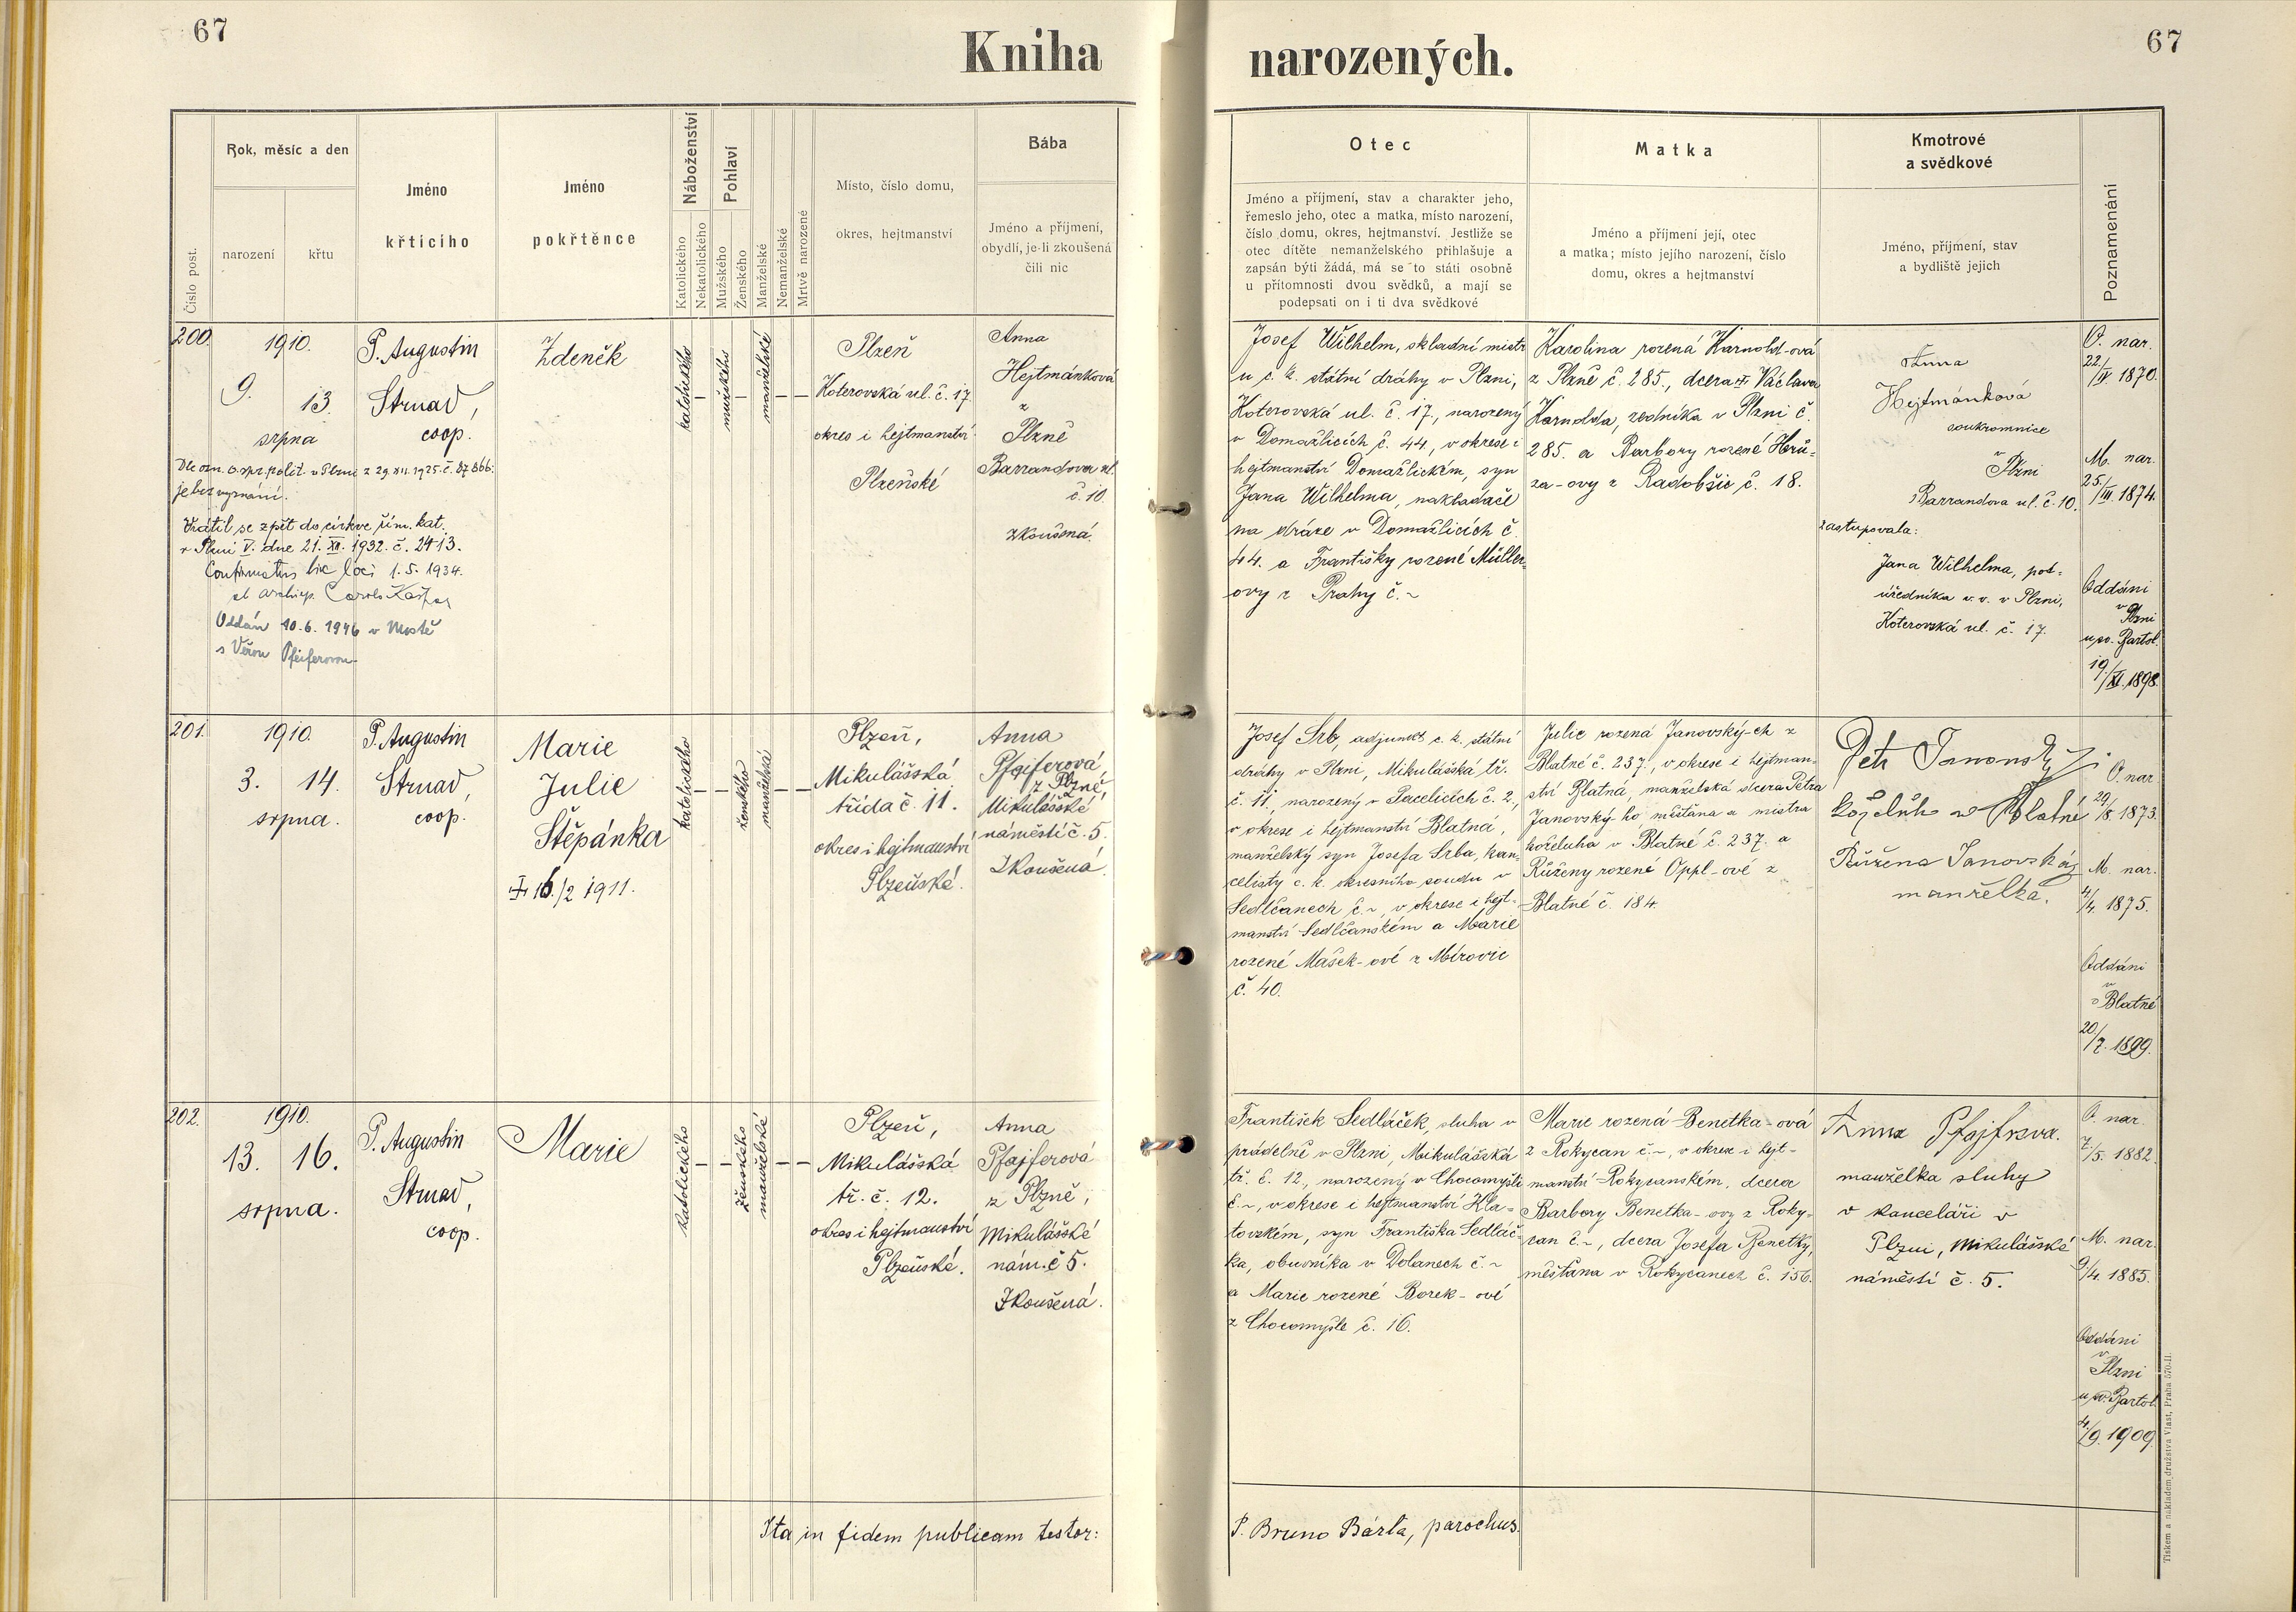 67
Kniha
narozených.
67
Číslo post.
Rok, měsíc a den
narození
křtu
Jméno
křticího
Jméno
pokřtěnce
Náboženství
Katolického
Nekatolického
Pohlaví
Mužského
Ženského
Manželské
Nemanželské
Mrtvě narozené
Místo, číslo domu,
okres, hejtmanství
Bába
Jméno a příjmení,
obydlí, je-li zkoušená
čili nic
Otec
Jméno a příjmení, stav a charakter jeho,
řemeslo jeho, otec a matka, místo narození,
číslo domu, okres, hejtmanství. Jestliže se
otec dítěte nemanželského přihlašuje a
zapsán býti žádá, má se to státi osobně
u přítomnosti dvou svědků, a mají se
podepsati on i ti dva svědkové
Matka
Jméno a příjmení její, otec
a matka; místo jejího narození, číslo
domu, okres a hejtmanství
Kmotrové
a svědkové
Jméno, příjmení, stav
a bydliště jejich
Poznamenání
200.
1910.
9. 13.
srpna
Dle ozn. o. spr. polit. v Plzni z 29. XII. 1925. č. 87866.
je bez vyznání.
Vrátil se zpět do církve řím. kat.
v Plzni V. dne 21. XII. 1932. č. 2413.
Confirmatus hic loci 1. 5. 1934.
ab archiep. Carolo Kašpar
Oddán 10. 6. 1946 v Mostě
s Věrou Pfeiferovou
P. Augustin
Strnad,
coop.
Zdeněk
katolického
mužského
manželské
Plzeň
Koterovská ul. č. 17.
okres i hejtmanství
Plzeňské
Anna
Hejtmánková
z
Plzně
Barrandova ul.
č. 10.
zkoušená.
Josef Wilhelm, skladní mistr
u c. k. státní dráhy v Plzni,
Koterovská ul. č. 17., narozený
v Domažlicích č. 44., v okrese i
hejtmanství Domažlickém, syn
Jana Wilhelma, nakladače
na dráze v Domažlicích č.
44. a Františky rozené Müller-
ovy z Prahy č. ~
Karolina rozená Harnold-ová
z Plzně č. 285., dcera Václava
Harnolda, zedníka v Plzni č.
285. a Barbory rozené Herů-
za-ovy z Radobžic č. 18.
Anna
Hejtmánková
soukromnice
v
Plzni
Barrandova ul. č. 10.
zastupovala:
Jana Wilhelma, pod-
úředníka v. v. v Plzni,
Koterovská ul. č. 17.
O. nar.
22./IV. 1870.
M. nar.
25./III. 1874.
Oddáni
v Plzni
u sv. Bartol.
19./XI. 1898.
201.
1910.
3. 14.
srpna.
P. Augustin
Strnad,
coop.
Marie
Julie
Štěpánka
16./2 1911.
katolického
ženského
manželská
Plzeň,
Mikulášská
třída č. 11.
okres i hejtmanství
Plzeňské.
Anna
Pfajferová,
z Plzně,
Mikulášské
náměstí č. 5.
Zkoušená.
Josef Srb, adjunkt c. k. státní
dráhy v Plzni, Mikulášská tř.
č. 11., narozený v Pacelicích č. 2.,
v okrese i hejtmanství Blatná,
manželský syn Josefa Srba, kan-
celisty c. k. okresního soudu v
Sedlčanech č. ~, v okrese i hejt-
manství Sedlčanském a Marie
rozené Mašek-ové z Mírovic
č. 40.
Julie rozená Janovský-ch z
Blatné č. 237., v okrese i hejtman-
ství Blatná, manželská dcera Petra
Janovský-ho měšťana a mistra
koželuha v Blatné č. 237. a
Růženy rozené Oppl-ové z
Blatné č. 184.
Petr Janovský
koželuh v Blatné
Růžena Janovská
manželka.
O. nar.
29./8. 1873.
M. nar.
4./4. 1875.
Oddáni
v
Blatné
20./7. 1899.
202.
1910.
13. 16.
srpna.
P. Augustin
Strnad,
coop.
Marie
katolického
ženského
manželské
Plzeň,
Mikulášská
tř. č. 12.
okres i hejtmanství
Plzeňské.
Anna
Pfajferová
z Plzně,
Mikulášské
nám. č 5.
Zkoušená.
František Sedláček, sluha v
prádelně v Plzni, Mikulášská
tř. č. 12., narozený v Chocomyšli
č. ~, v okrese i hejtmanství Kla-
tovském, syn Františka Sedláč-
ka, obuvníka v Dolanech č. ~
a Marie rozené Borek-ové
z Chocomyšle č. 16.
Marie rozená Benetka-ová
z Rokycan č. ~, v okrese i hejt-
manství Rokycanském, dcera
Barbory Benetka-ovy z Roky-
can č. ~, dcera Josefa Benetky,
měšťana v Rokycanech č. 156.
Anna Pfajfrová.
manželka sluhy
v kanceláři v
Plzni, Mikulášské
náměstí č. 5.
O. nar.
7./5. 1882.
M. nar.
9./4. 1885.
Oddáni
v
Plzni
u sv. Bartol.
4./9. 1909.
Ita in fidem publicam testor:
P. Bruno Bárta, parochus.
Tiskem a nákladem družstva Vlast, Praha 570-II.